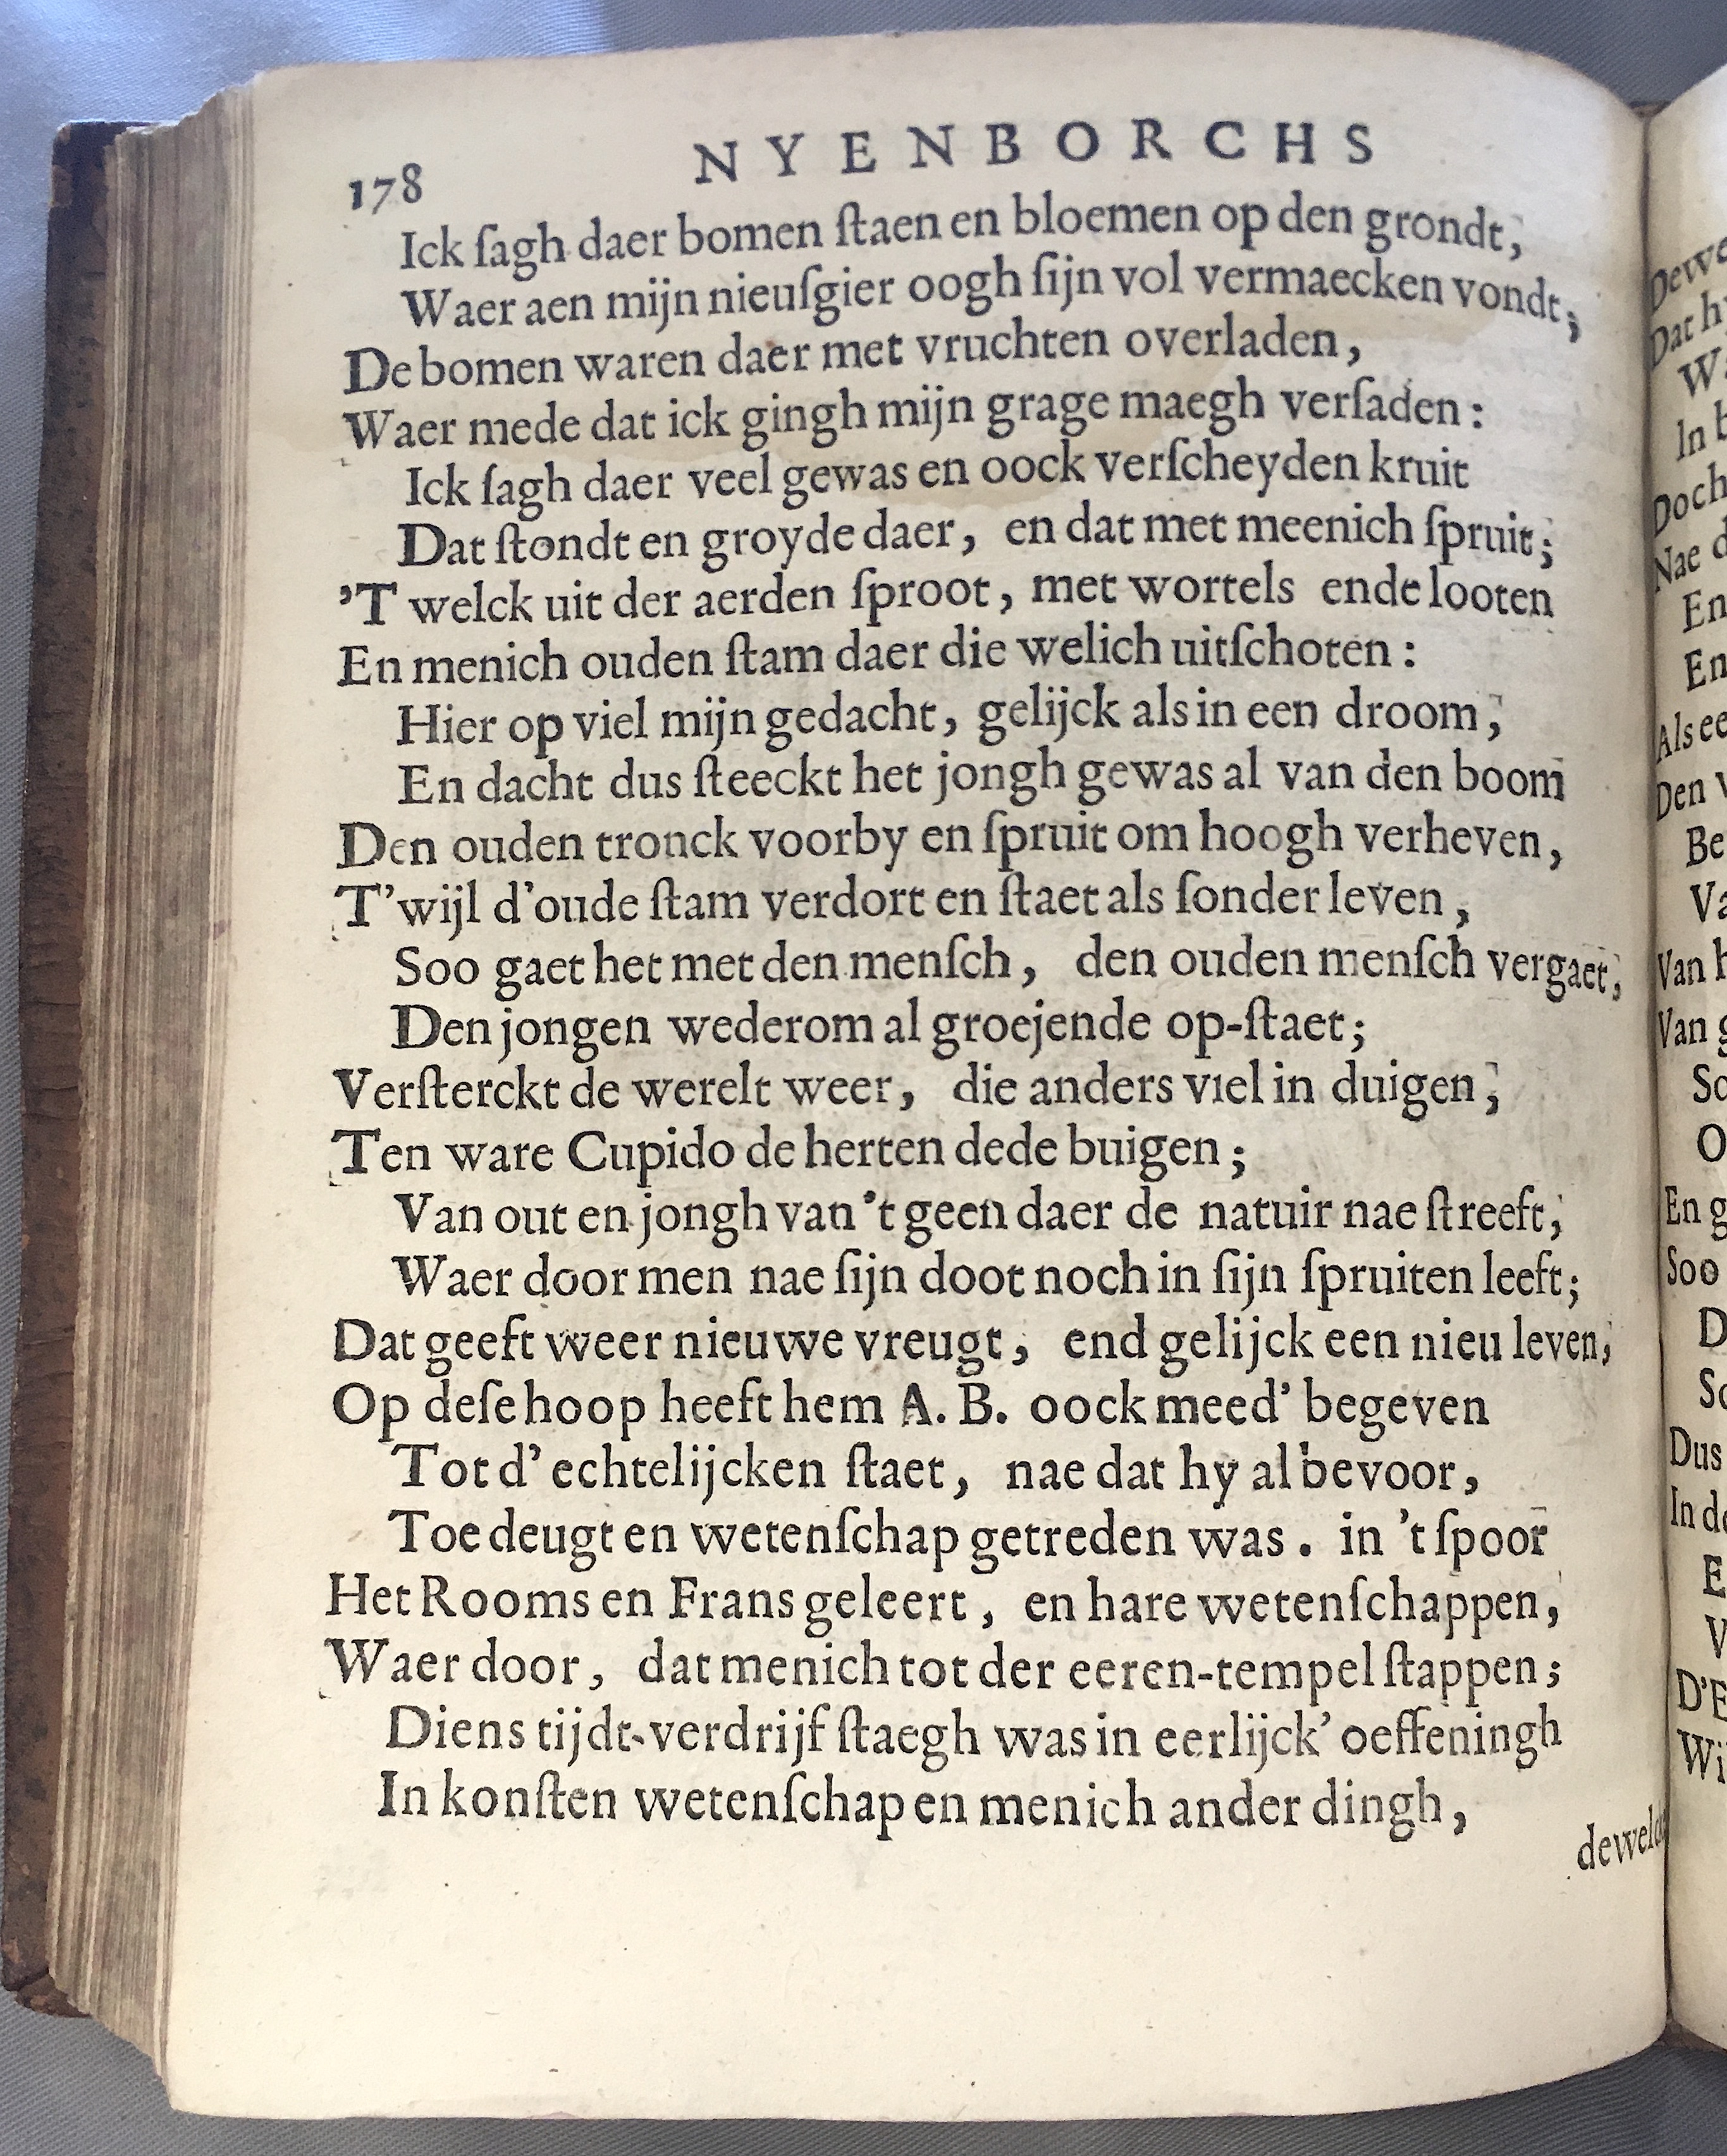 178 NYENBORCHS
Ick ſagh daer bomen ſtaen en bloemen op den grondt,
Waer aen mijn nieuſgier oogh ſijn vol vermaecken vondt;
De bomen waren daer met vruchten overladen,
Waer mede dat ick gingh mijn grage maegh verſaden:
Ick ſagh daer veel gewas en oock verſcheyden kruit
Dat ſtondt en groyde daer, en dat met meenich ſpruit;
'T welck uit der aerden ſproot, met wortels ende looten
En menich ouden ſtam daer die welich uitſchoten:
Hier op viel mijn gedacht, gelijck als in een droom,
En dacht dus ſteeckt het jongh gewas al van den boom
Den ouden tronck voorby en ſpruit om hoogh verheven,
T'wijl d'oude ſtam verdort en ſtaet als ſonder leven,
Soo gaet het met den menſch, den ouden menſch vergaet,
Den jongen wederom al groejende op-ſtaet;
Verſterckt de werelt weer, die anders viel in duigen,
Ten ware Cupido de herten dede buigen;
Van out en jongh van 't geen daer de natuir nae ſtreeft,
Waer door men nae ſijn doot noch in ſijn ſpruiten leeft;
Dat geeft weer nieuwe vreugt, end gelijck een nieu leven,
Op deſe hoop heeft hem A. B. oock meed' begeven
Tot d' echtelijcken ſtaet, nae dat hy al bevoor,
Toe deugt en wetenſchap getreden was. in 't ſpoor
Het Rooms en Frans geleert, en hare wetenſchappen,
Waer door, dat menich tot der eeren-tempel ſtappen;
Diens tijdt-verdrijf ſtaegh was in eerlijck' oeffeningh
In konſten wetenſchap en menich ander dingh,
Dat
W
In
Doch
Nae
En
En
Als ee
Den
Be
Van
Van
En g
Soo
Dus